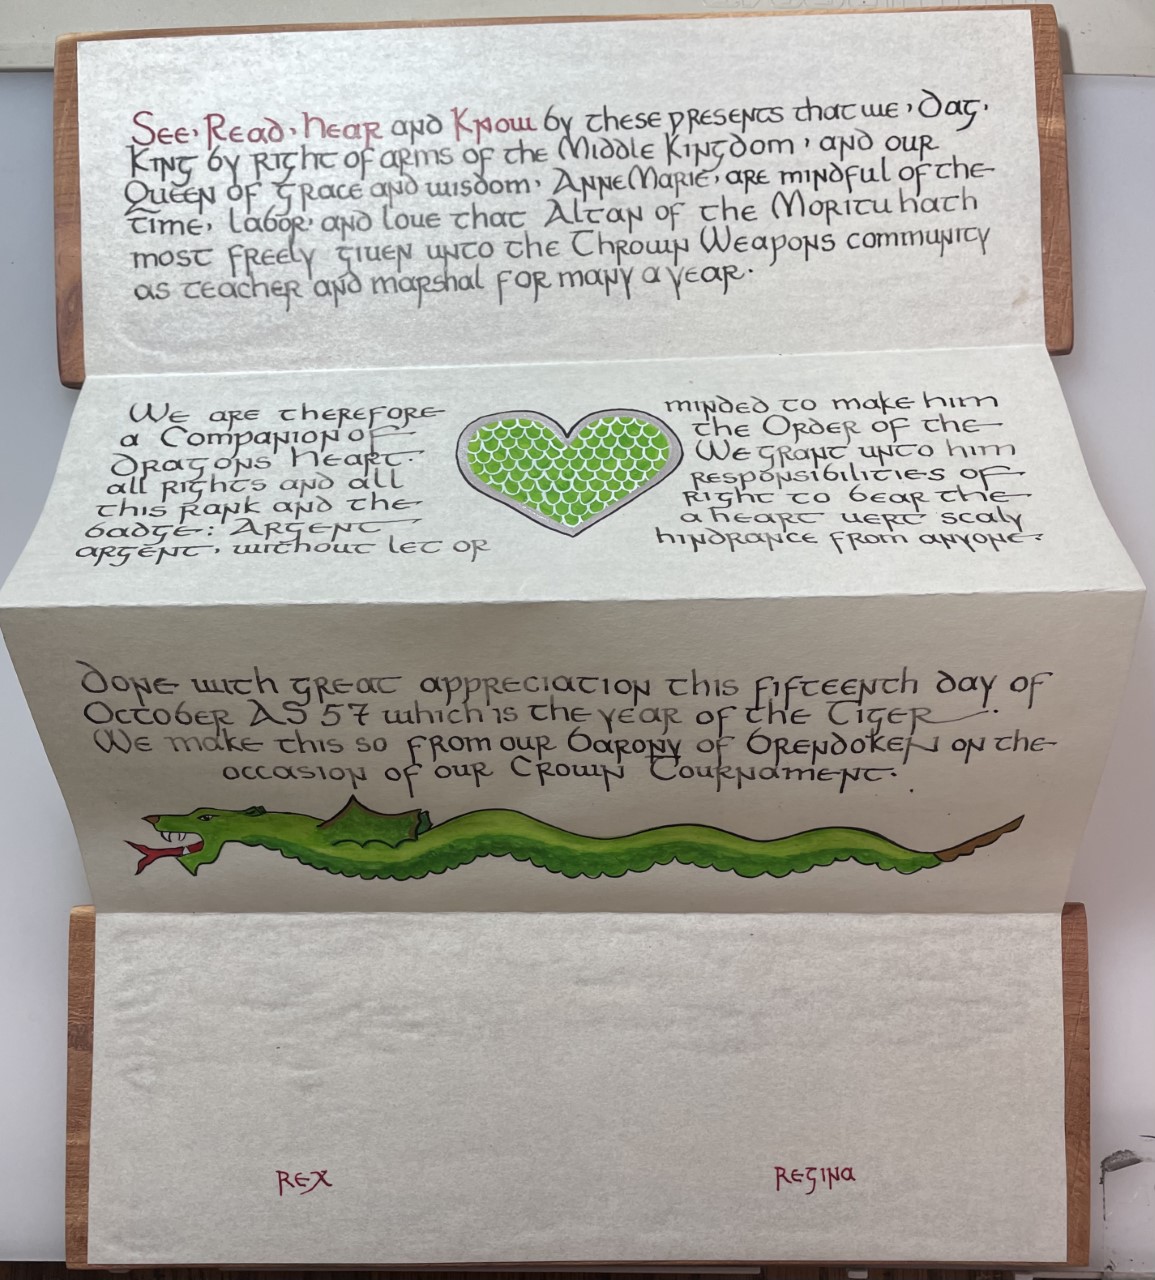 See, Read, hear and Know by these presents that we, Dag,
King by right of arms of the Middle Kingdom, and our
Queen of grace and wisdom, AnneMarie, are mindful of the
time, labor, and love that Altan of the Moritu hath
most freely given unto the Thrown Weapons community
as teacher and marshal for many a year.
We are therefore minded to make him
a Companion of the Order of the
Dragons Heart. We grant unto him
all rights and all responsibilities of
this rank and the right to bear the
badge: Argent a heart vert scaly
argent, without let or hindrance from anyone.
Done with great appreciation this fifteenth day of
October AS 57 which is the year of the Tiger.
We make this so from our Barony of Brendoken on the
occasion of our Crown Tournament.
Rex Regina